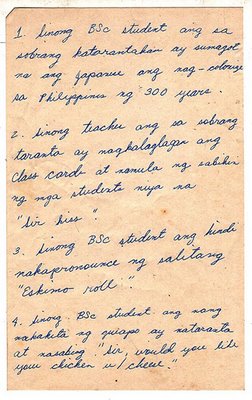 1. Sinong BSc student ang sa
sobrang katarantahan ay sumagot
na ang Japanese ang nag-colonize
sa Philippines ng 300 years.
2. Sinong teacher ang sa sobrang
taranta ay nagkalaglagan ang
class cards at namula ng sabihin
ng mga students niya na
"Sir kiss".
3. Sinong BSc student ang hindi
nakapronounce ng salitang
"Eskimo roll"?
4. Sinong BSc student ang nang
nakakita ng guapo ay nataranta
at nasabing "Sir, would you like
your chicken w/ cheese."